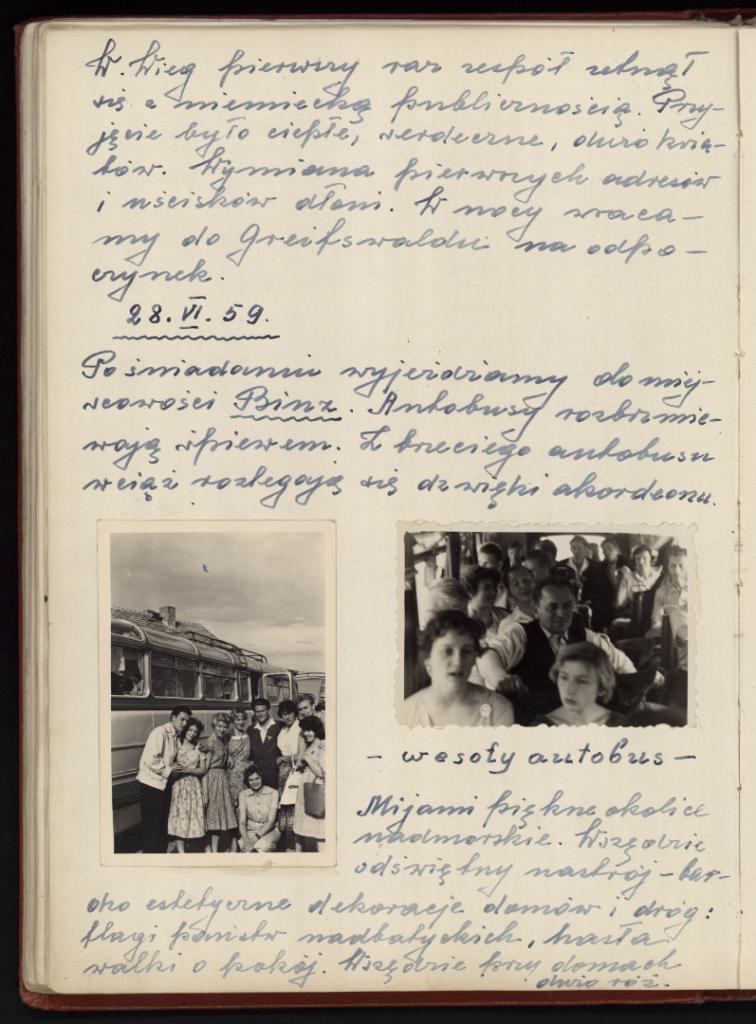 W. Wieg pierwszy raz zespół zetnął
się z niemiecką publicznością. Przy-
jęcie było ciepłe, serdeczne, dużo kwia-
tów. Wymiana pierwszych adresów
i uścisków dłoni. W nocy wraca-
my do Greifswaldu na odpo-
czynek.
28. VI. 59.
Po śniadaniu wyjeżdżamy do miej-
scowości Binz. Autobusy rozbrzmie-
wają śpiewem. Z trzeciego autobusu
wciąż rozlegają się dźwięki akordeonu.
- wesoły autobus -
Mijamy piękne okolice
nadmorskie. Wszędzie
odświętny nastrój - bar-
dzo estetyczne dekoracje domów i dróg:
flagi państw nadbałtyckich, hasła
walki o pokój. Wszędzie przy domach
dużo róż.